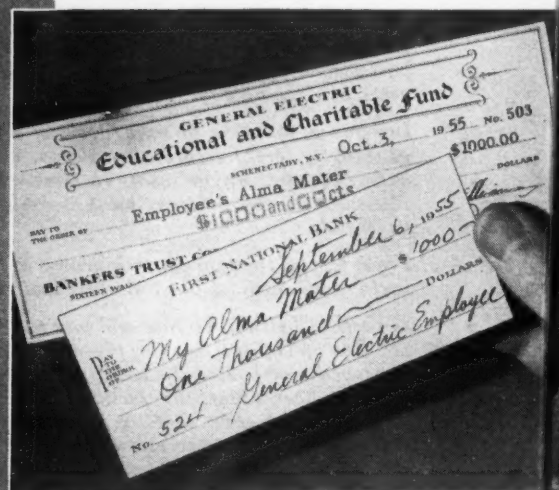 GENERAL ELECTRIC
Educational and Charitable Fund
SCHENECTADY, N.Y. Oct. 3, 1955 No. 503
PAY TO THE ORDER OF Employee's Alma Mater $1000.00
$1000and00cts DOLLARS
BANKERS TRUST CO
SIXTEEN WALL
FIRST NATIONAL BANK
September 6, 1955
PAY TO THE ORDER OF My Alma Mater $1000-
One Thousand DOLLARS
No. 524 General Electric Employee